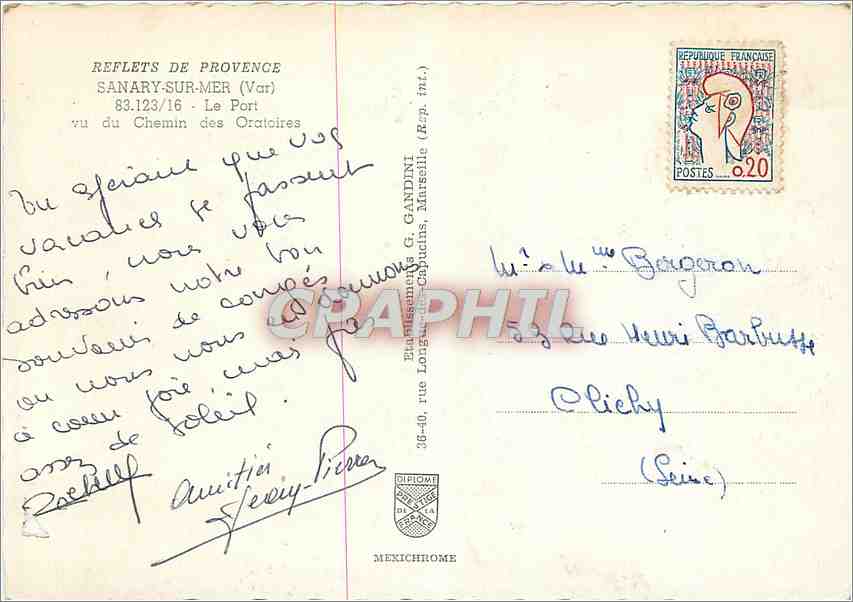 REFLETS DE PROVENCE
SANARY-SUR-MER (Var)
83.123/16 - Le Port
vu du Chemin des Oratoires
En espérant que vos
vacances se passent
bien, nous vous
adressons notre bon
souvenir de congés
où nous nous en donnons
à cœur joie, mais pas
assez de soleil.
Amitiés
Jean-Pierre
Etablissements G. GANDINI
36-40, rue Longue-des-Capucins, Marseille (Rep. int.)
DIPLOME
PRESTIGE
DE LA
FRANCE
MEXICHROME
REPUBLIQUE FRANÇAISE
POSTES
0,20
Mr & Mme Bergeron
53 rue Henri Barbusse
Clichy
(Seine)
CRAPHIL